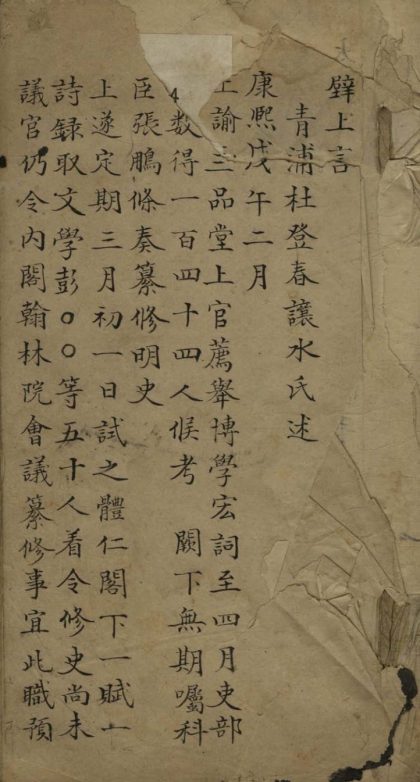 壁上言
青浦杜登春讓水氏述
康熙戊午二月
上諭三品堂上官薦舉博學宏詞至四月吏部
数得一百四十四人候考 闕下無期囑科
臣張鵬條奏纂修明史
上遂定期三月初一日試之體仁閣下一賦一
詩録取文學彭〇〇等五十人着令修史尚未
議官仍令内閣翰林院會議纂修事宜此職預